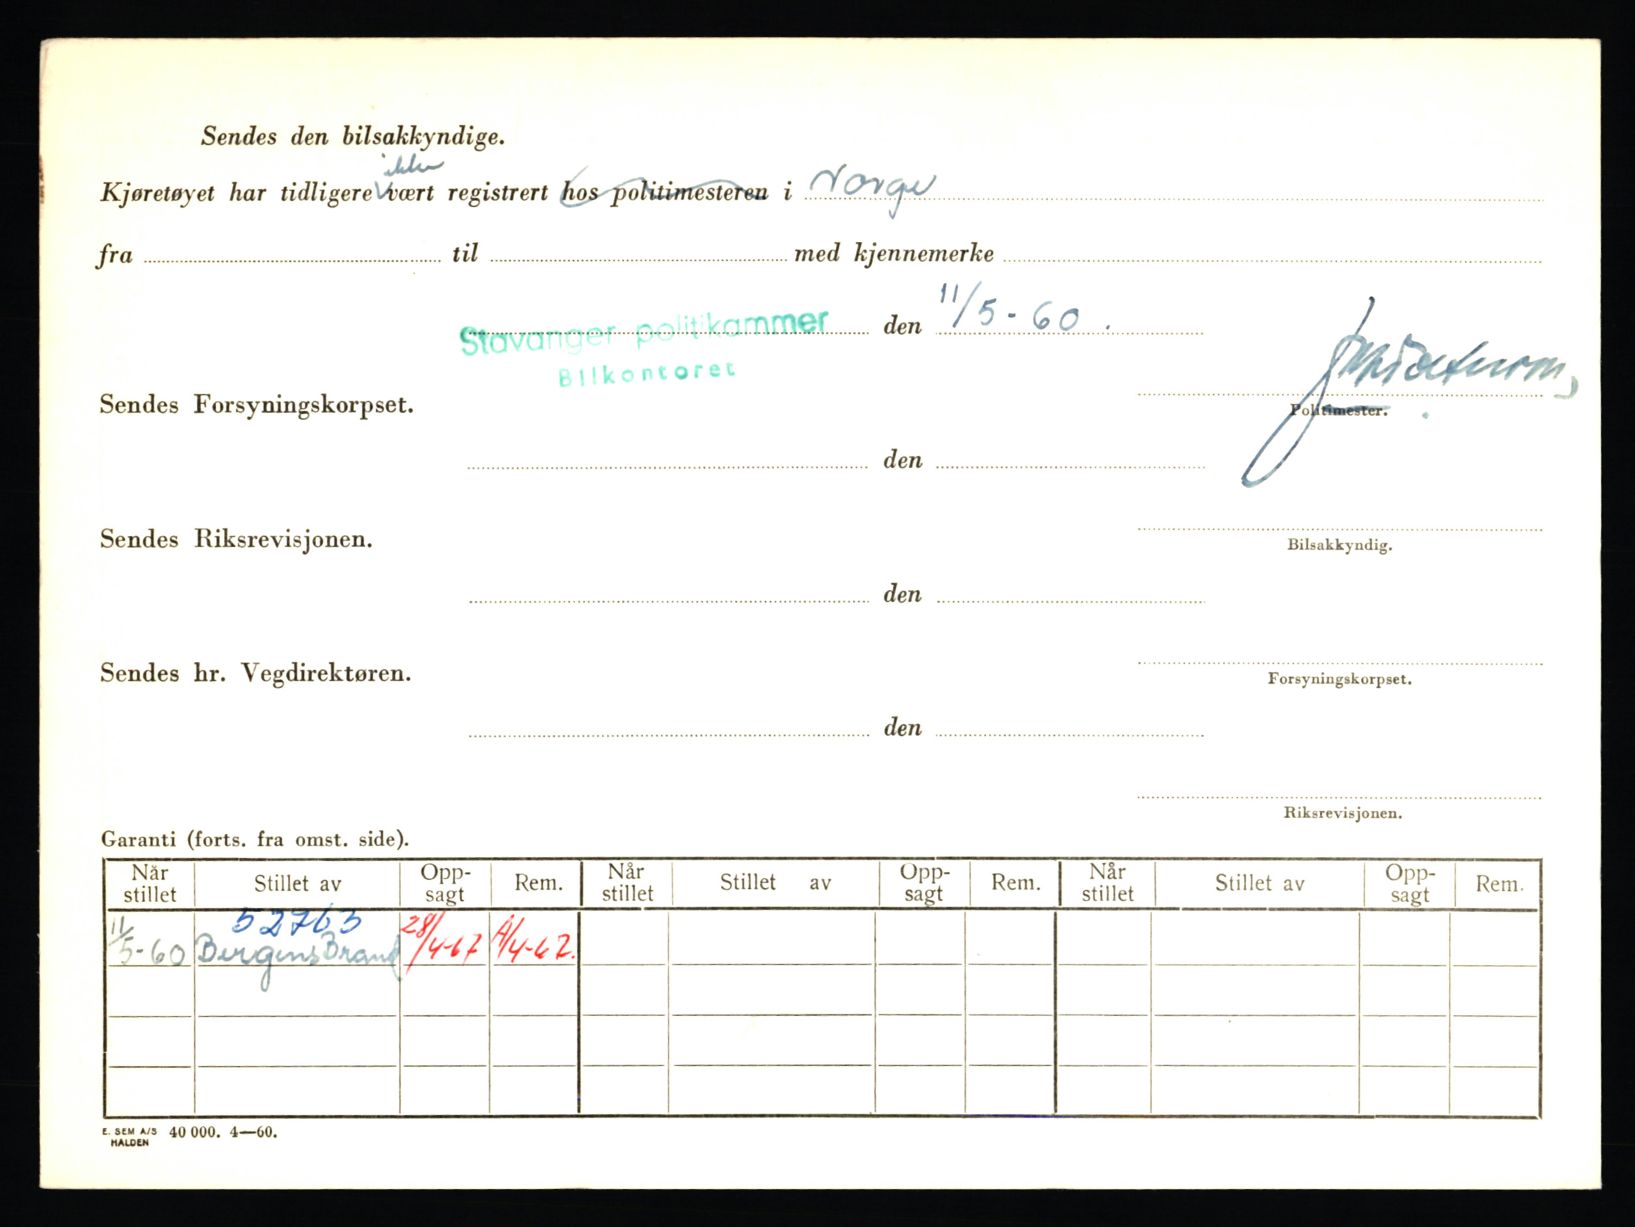 Sendes den bilsakkyndige.
ikke
Kjøretøyet har tidligere vært registrert hos politimesteren i Norge
fra til med kjennemerke
Stavanger politikammer den 11/5-60.
Bilkontoret
Sendes Forsyningskorpset.
Politimester.
den
Sendes Riksrevisjonen.
Bilsakkyndig.
den
Sendes hr. Vegdirektøren.
Forsyningskorpset.
den
Riksrevisjonen.
Garanti (forts. fra omst. side).
Når stillet Stillet av Opp-sagt Rem. Når stillet Stillet av Opp-sagt Rem. Når stillet Stillet av Opp-sagt Rem.
52763
11/5-60 Bergens Brand 28/4-67
E. SEM A/S 40 000. 4—60.
HALDEN